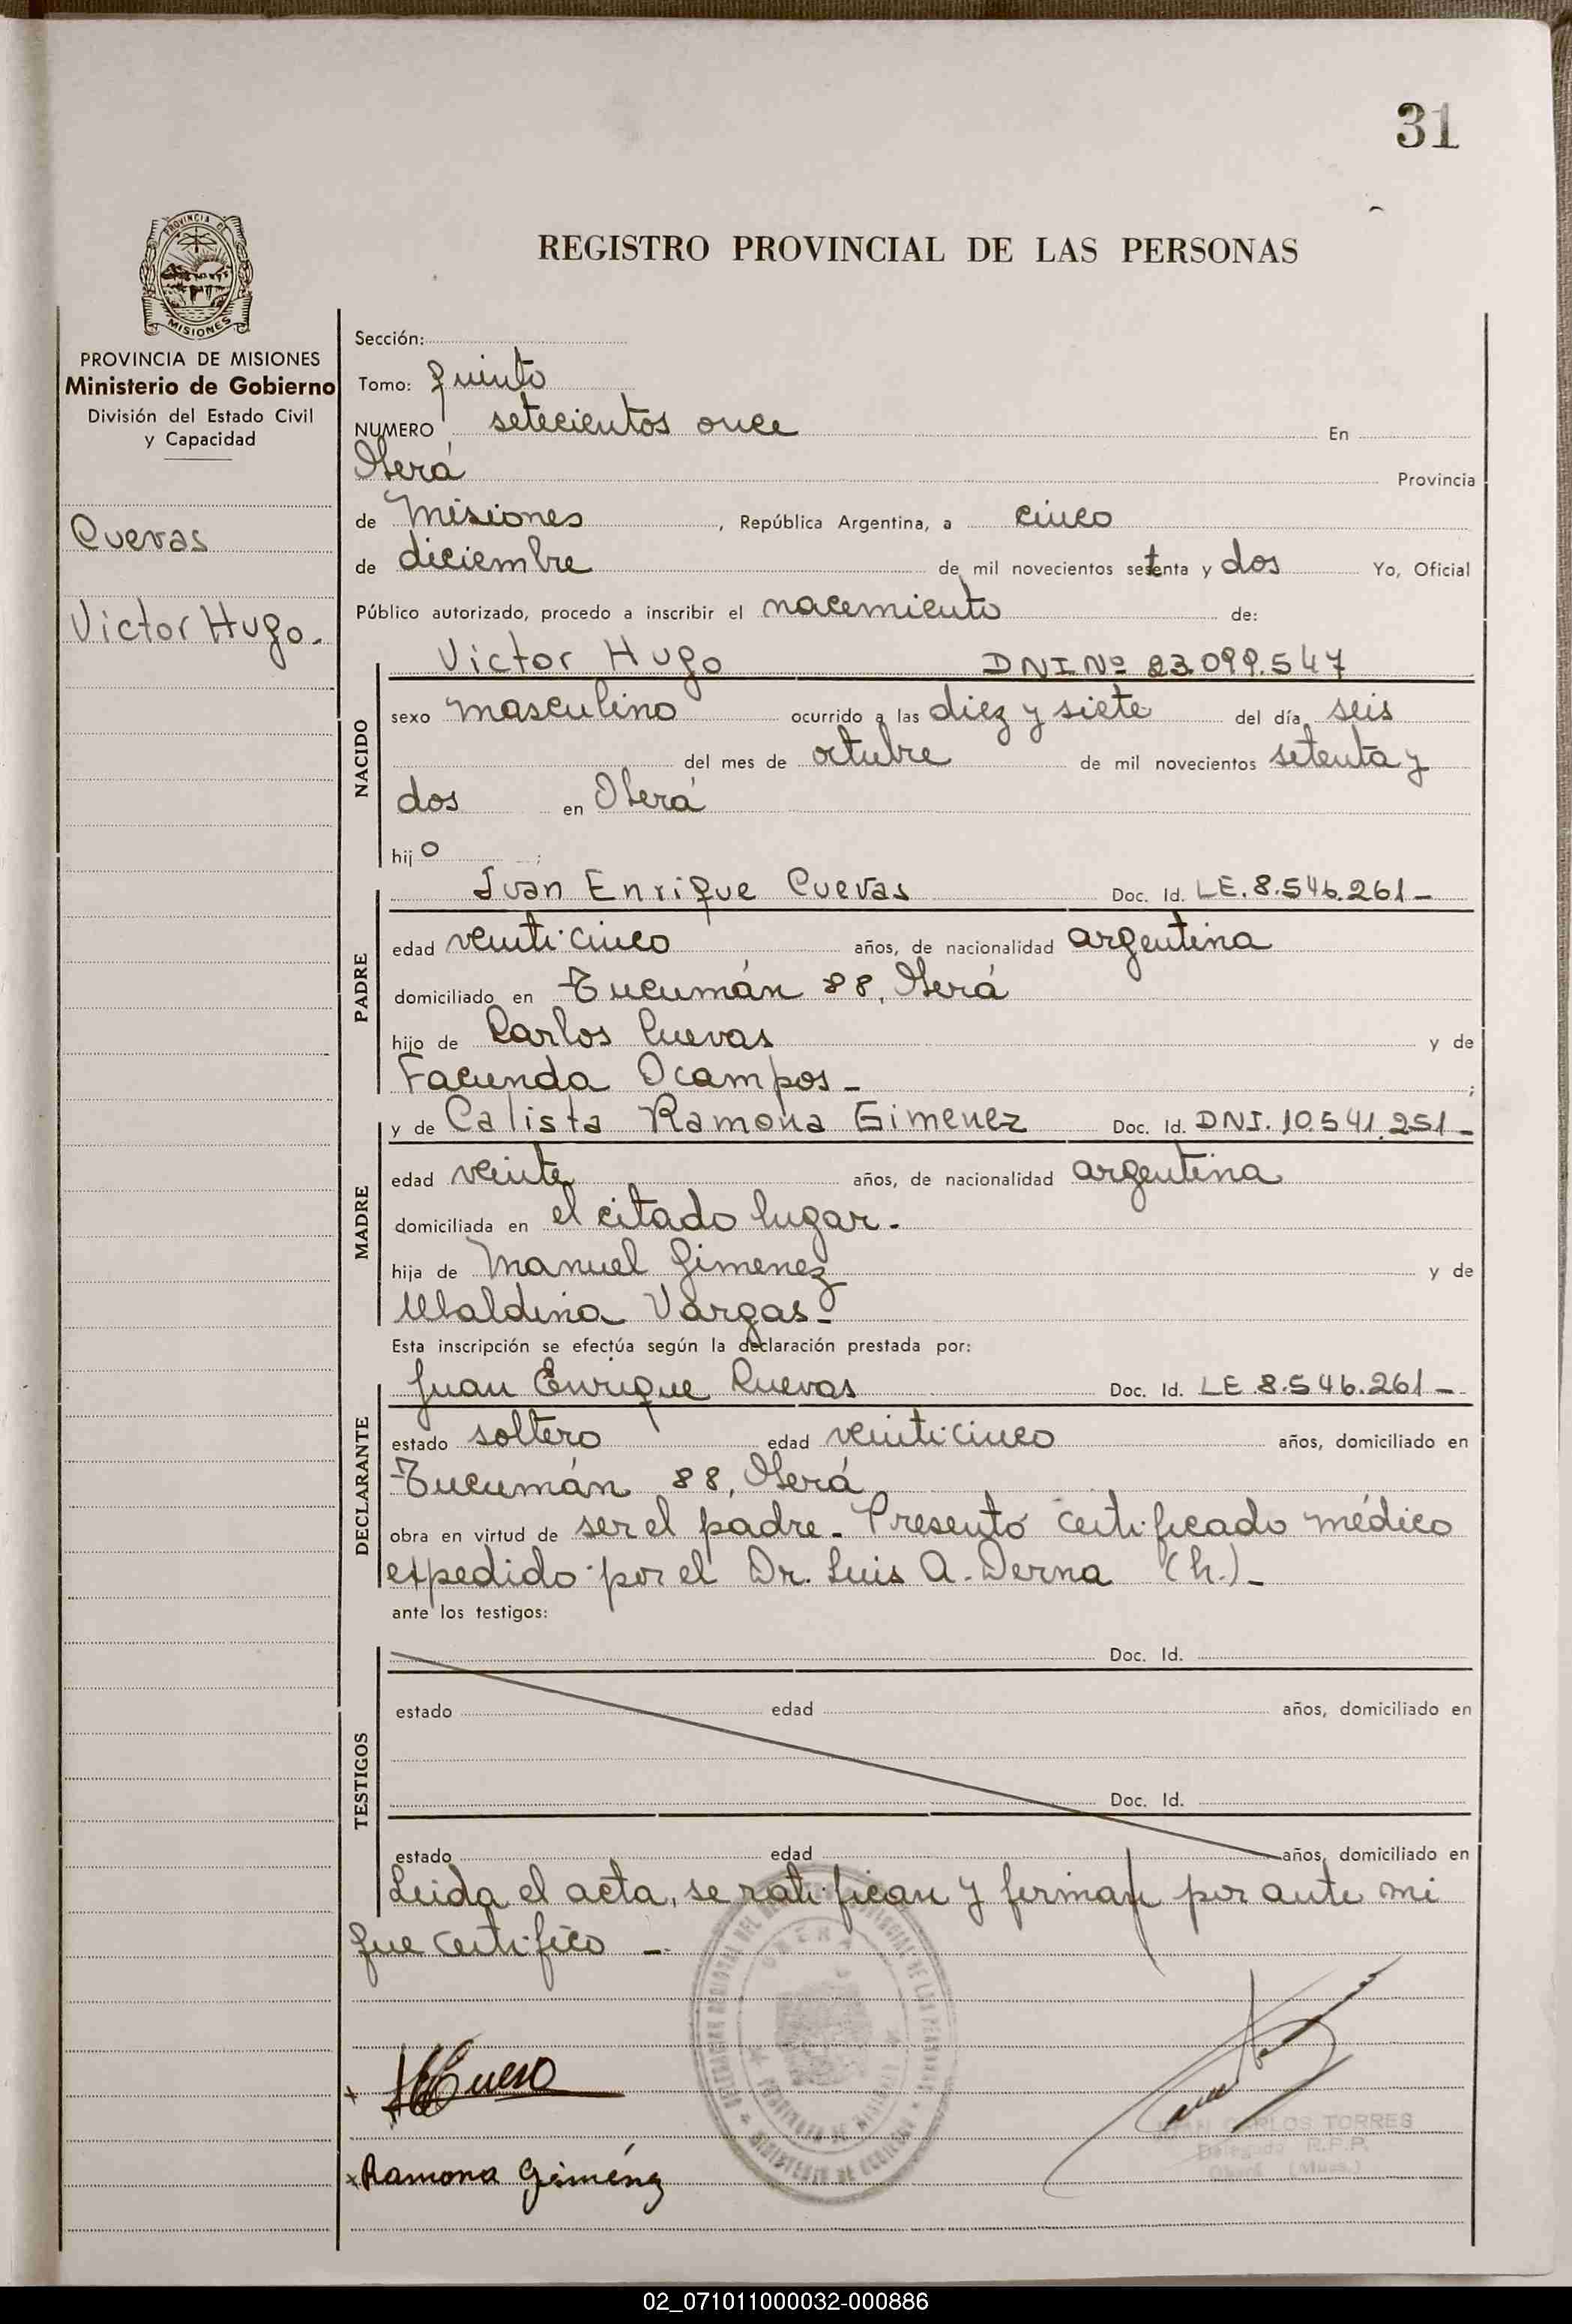 31
PROVINCIA DE
MISIONES
REGISTRO PROVINCIAL DE LAS PERSONAS
PROVINCIA DE MISIONES
Ministerio de Gobierno
División del Estado Civil
y Capacidad
Cuevas
Victor Hugo.
Sección:
Tomo: quinto
NUMERO setecientos once En
Oberá Provincia
de Misiones, República Argentina, a cinco
de diciembre de mil novecientos setenta y dos Yo, Oficial
Público autorizado, procedo a inscribir el nacemiento de:
Victor Hugo DNI Nº 23.099.547
NACIDO
sexo masculino ocurrido a las diez y siete del día seis
del mes de octubre de mil novecientos setenta y
dos en Oberá
hijo ;
PADRE
Juan Enrique Cuevas Doc. Id. LE. 8.546.261-
edad veinticinco años, de nacionalidad argentina
domiciliado en Tucumán 88, Oberá
hijo de Carlos Cuevas y de
Facunda Ocampos- ;
MADRE
y de Calista Ramona Gimenez Doc. Id. DNI. 10.541.251-
edad veinte años, de nacionalidad argentina
domiciliada en el citado lugar.
hija de Manuel Gimenez y de
Ubaldina Vargas-
Esta inscripción se efectúa según la declaración prestada por:
DECLARANTE
Juan Enrique Cuevas Doc. Id. LE 8.546.261-
estado soltero edad veinticinco años, domiciliado en
Tucumán 88, Oberá
obra en virtud de ser el padre. Presentó certificado médico
expedido por el Dr. Luis A. Derna (h.)-
ante los testigos:
TESTIGOS
Doc. Id.
estado edad años, domiciliado en
Doc. Id.
estado edad años, domiciliado en
Leida el acta, se ratifican y firman por ante mi
que certifico -
OBERA
PROVINCIA DE MISIONES
MINISTERIO DE GOBIERNO
x Cuevas
JUAN CARLOS TORRES
Delegado R.P.P.
Oberá (Mnes.)
x Ramona Giménez
02_071011000032-000886